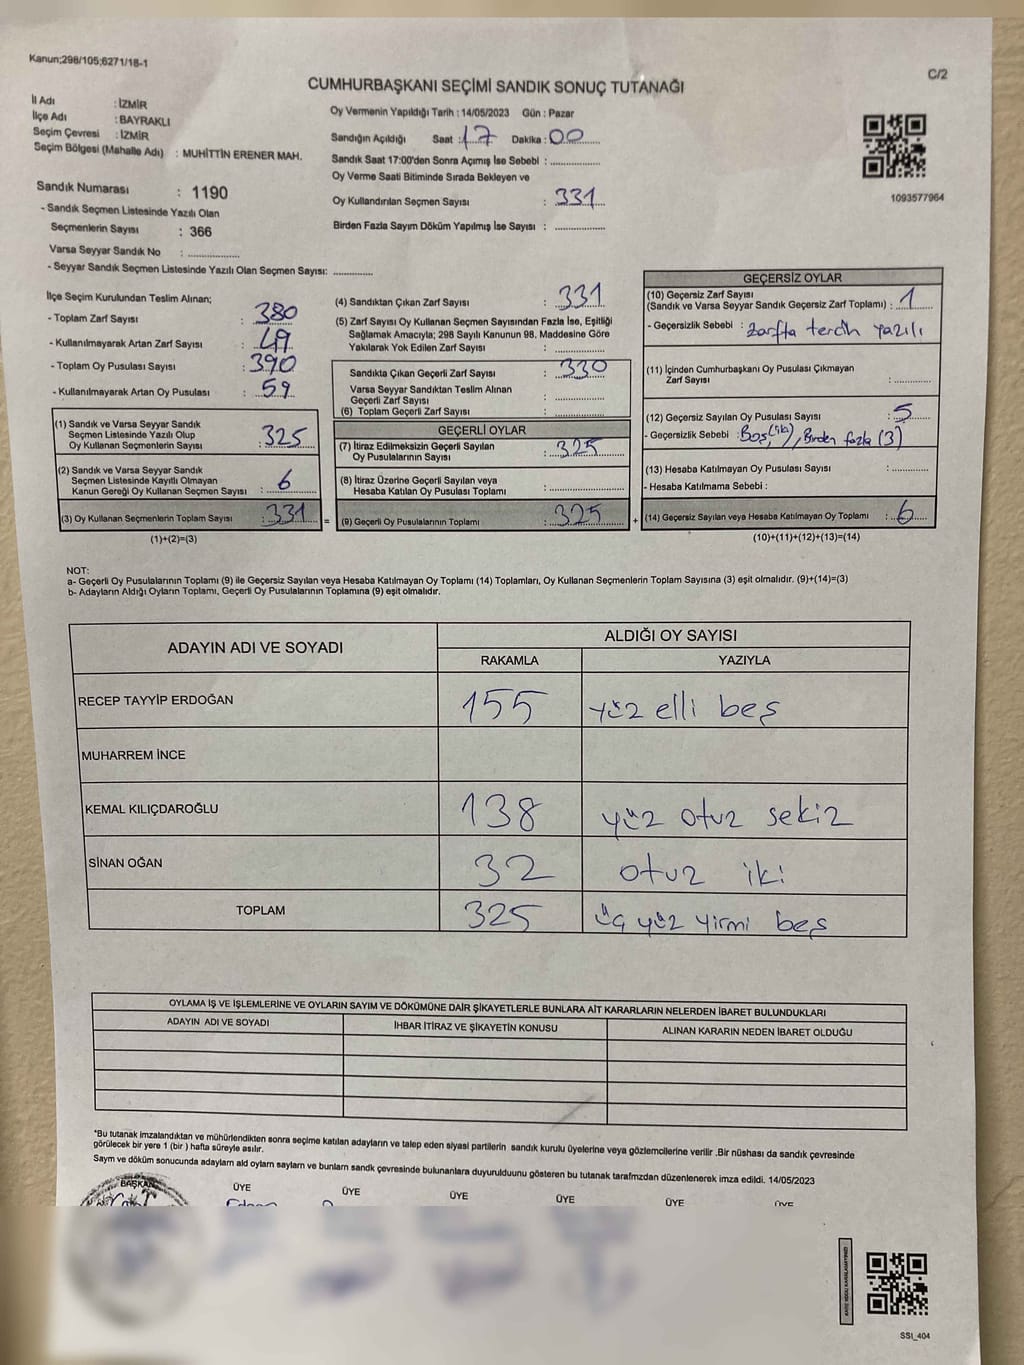 Kanun;298/105;6271/18-1
C/2
CUMHURBAŞKANI SEÇİMİ SANDIK SONUÇ TUTANAĞI
İl Adı : İZMİR
İlçe Adı : BAYRAKLI
Seçim Çevresi : İZMİR
Seçim Bölgesi (Mahalle Adı) : MUHİTTİN ERENER MAH.
Sandık Numarası : 1190
- Sandık Seçmen Listesinde Yazılı Olan
Seçmenlerin Sayısı : 366
Varsa Seyyar Sandık No : ................
- Seyyar Sandık Seçmen Listesinde Yazılı Olan Seçmen Sayısı: ............
Oy Vermenin Yapıldığı Tarih : 14/05/2023 Gün : Pazar
Sandığın Açıldığı Saat : 17 Dakika : 00
Sandık Saat 17:00'den Sonra Açımış İse Sebebi : ................
Oy Verme Saati Bitiminde Sırada Bekleyen ve
Oy Kullandırılan Seçmen Sayısı : 331
Birden Fazla Sayım Döküm Yapılmış İse Sayısı : ................
1093577964
İlçe Seçim Kurulundan Teslim Alınan;
- Toplam Zarf Sayısı : 380
- Kullanılmayarak Artan Zarf Sayısı : 49
- Toplam Oy Pusulası Sayısı : 390
- Kullanılmayarak Artan Oy Pusulası : 59
(1) Sandık ve Varsa Seyyar Sandık
Seçmen Listesinde Yazılı Olup
Oy Kullanan Seçmenlerin Sayısı : 325
(2) Sandık ve Varsa Seyyar Sandık
Seçmen Listesinde Kayıtlı Olmayan
Kanun Gereği Oy Kullanan Seçmen Sayısı : 6
(3) Oy Kullanan Seçmenlerin Toplam Sayısı : 331
(1)+(2)=(3)
(4) Sandıktan Çıkan Zarf Sayısı : 331
(5) Zarf Sayısı Oy Kullanan Seçmen Sayısından Fazla İse, Eşitliği
Sağlamak Amacıyla; 298 Sayılı Kanunun 98. Maddesine Göre
Yakılarak Yok Edilen Zarf Sayısı : ................
Sandıkta Çıkan Geçerli Zarf Sayısı : 330
Varsa Seyyar Sandıktan Teslim Alınan
Geçerli Zarf Sayısı : ................
(6) Toplam Geçerli Zarf Sayısı : ................
GEÇERLİ OYLAR
(7) İtiraz Edilmeksizin Geçerli Sayılan
Oy Pusulalarının Sayısı : 325
(8) İtiraz Üzerine Geçerli Sayılan veya
Hesaba Katılan Oy Pusulası Toplamı : ................
= (9) Geçerli Oy Pusulalarının Toplamı : 325 +
GEÇERSİZ OYLAR
(10) Geçersiz Zarf Sayısı
(Sandık ve Varsa Seyyar Sandık Geçersiz Zarf Toplamı) : 1
- Geçersizlik Sebebi : zarfta tercih yazılı
(11) İçinden Cumhurbaşkanı Oy Pusulası Çıkmayan
Zarf Sayısı : ............
(12) Geçersiz Sayılan Oy Pusulası Sayısı : 5
- Geçersizlik Sebebi : Boş (iki), Birden fazla (3)
(13) Hesaba Katılmayan Oy Pusulası Sayısı : ............
- Hesaba Katılmama Sebebi :
(14) Geçersiz Sayılan veya Hesaba Katılmayan Oy Toplamı : 6
(10)+(11)+(12)+(13)=(14)
NOT:
a- Geçerli Oy Pusulalarının Toplamı (9) ile Geçersiz Sayılan veya Hesaba Katılmayan Oy Toplamı (14) Toplamları, Oy Kullanan Seçmenlerin Toplam Sayısına (3) eşit olmalıdır. (9)+(14)=(3)
b- Adayların Aldığı Oyların Toplamı, Geçerli Oy Pusulalarının Toplamına (9) eşit olmalıdır.
ADAYIN ADI VE SOYADI ALDIĞI OY SAYISI
RAKAMLA YAZIYLA
RECEP TAYYİP ERDOĞAN 155 yüz elli beş
MUHARREM İNCE
KEMAL KILIÇDAROĞLU 138 yüz otuz sekiz
SİNAN OĞAN 32 otuz iki
TOPLAM 325 üç yüz yirmi beş
OYLAMA İŞ VE İŞLEMLERİNE VE OYLARIN SAYIM VE DÖKÜMÜNE DAİR ŞİKAYETLERLE BUNLARA AİT KARARLARIN NELERDEN İBARET BULUNDUKLARI
ADAYIN ADI VE SOYADI İHBAR İTİRAZ VE ŞİKAYETİN KONUSU ALINAN KARARIN NEDEN İBARET OLDUĞU
*Bu tutanak imzalandıktan ve mühürlendikten sonra seçime katılan adayların ve talep eden siyasi partilerin sandık kurulu üyelerine veya gözlemcilerine verilir .Bir nüshası da sandık çevresinde
görülecek bir yere 1 (bir ) hafta süreyle asılır.
Sayım ve döküm sonucunda adayların ald oyların sayların ve bunların sandk çevresinde bulunanlara duyurulduunu gösteren bu tutanak tarafmzdan düzenlenerek imza edildi. 14/05/2023
BAŞKAN ÜYE ÜYE ÜYE ÜYE ÜYE ÜYE
SSI_404